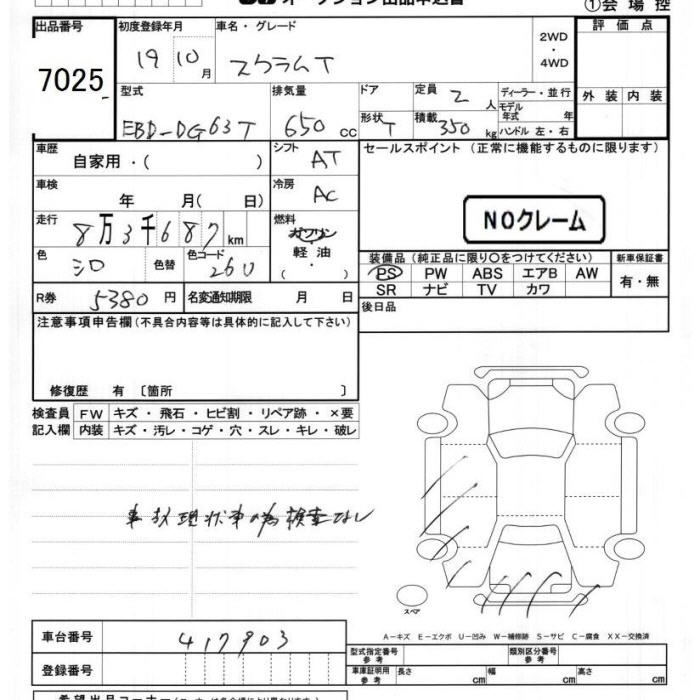 オークション出品申込書 ①会場控
出品番号 初度登録年月 車名・グレード 2WD・4WD 評価点
7025 19 10月 スクラムT
型式 排気量 ドア 定員 2人 ディーラー・並行 外装 内装
EBD-DG63T 650cc 形状 T 積載 350kg モデル年式 年 ハンドル 左・右
車歴 自家用・( ) シフト AT セールスポイント(正常に機能するものに限ります)
車検 年 月( 日) 冷房 AC
NOクレーム
走行 8万3千687km 燃料 ガソリン 軽油・( )
色 シロ 色替 色コード 26U 装備品(純正品に限り○をつけてください) 新車保証書
PS PW ABS エアB AW 有・無
SR ナビ TV カワ
R券 5380円 名変通知期限 月 日 後日品
注意事項申告欄(不具合内容等は具体的に記入して下さい)
修復歴 有〔箇所 〕
検査員 FW キズ・飛石・ヒビ割・リペア跡・×要
記入欄 内装 キズ・汚レ・コゲ・穴・スレ・キレ・破レ
事故現状車の為検査なし
スペア
A-キズ E-エクボ U-凹み W-補修跡 S-サビ C-腐食 XX-交換済
車台番号 417903
型式指定番号 参考 類別区分番号 参考
登録番号 車庫証明用 参考 長さ cm 幅 cm 高さ cm